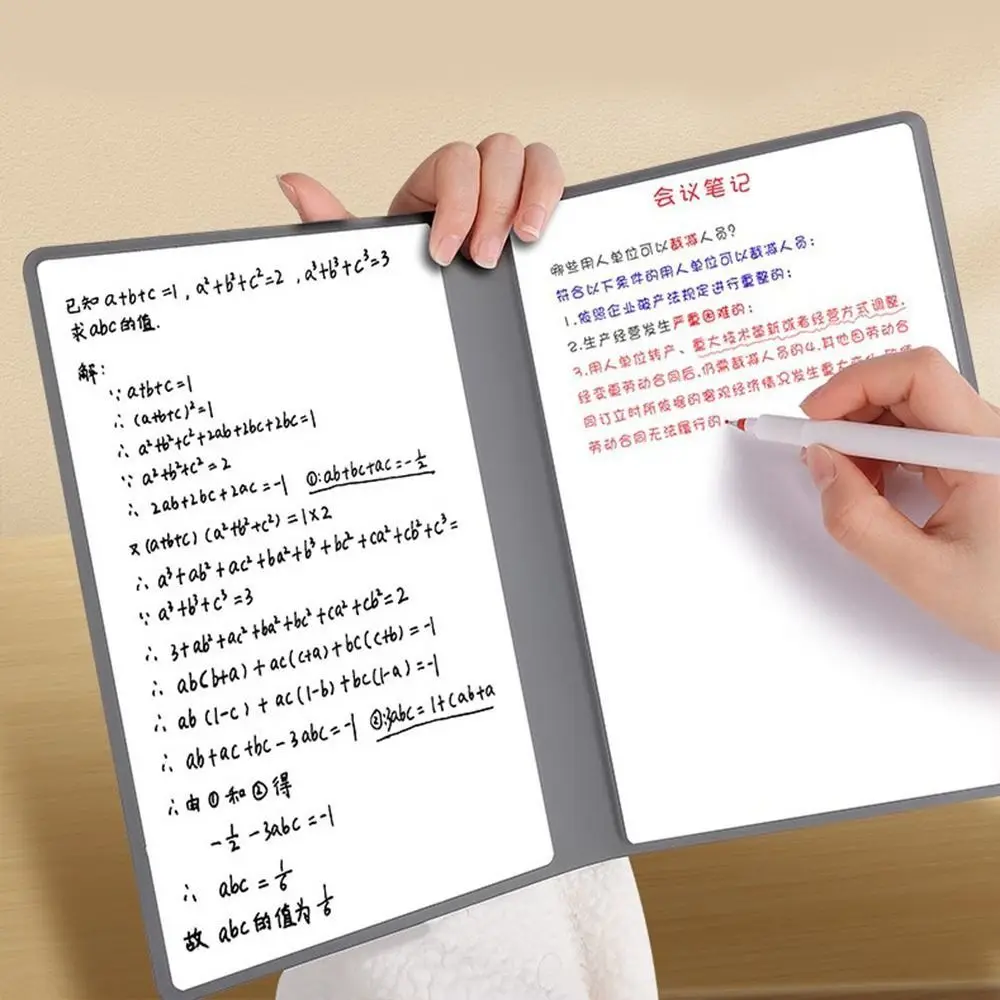 已知 a+b+c=1, a²+b²+c²=2, a³+b³+c³=3
求abc的值.
解:
∵ a+b+c=1
∴ (a+b+c)²=1
∴ a²+b²+c²+2ab+2bc+2bc=1
∵ a²+b²+c²=2
∴ 2ab+2bc+2ac=-1 ①:ab+bc+ac=-1/2
又(a+b+c)(a²+b²+c²)=1×2
∴ a³+ab²+ac²+ba²+b³+bc²+ca²+cb²+c³=
∵ a³+b³+c³=3
∴ 3+ab²+ac²+ba²+bc²+ca²+cb²=2
∴ ab(b+a)+ac(c+a)+bc(c+b)=-1
∴ ab(1-c)+ac(1-b)+bc(1-a)=-1
∴ ab+ac+bc-3abc=-1 ②:3abc=1+(ab+a
∴由①和②得
-1/2-3abc=-1
∴ abc=1/6
故 abc的值为1/6
会议笔记
哪些用人单位可以裁减人员?
符合以下条件的用人单位可以裁减人员:
1.依照企业破产法规定进行重整的:
2.生产经营发生严重困难的:
3.用人单位转产、重大技术革新或者经营方式调整,
经变更劳动合同后,仍需裁减人员的4.其他因劳动合
同订立时所依据的客观经济情况发生重大变化
劳动合同无法履行的